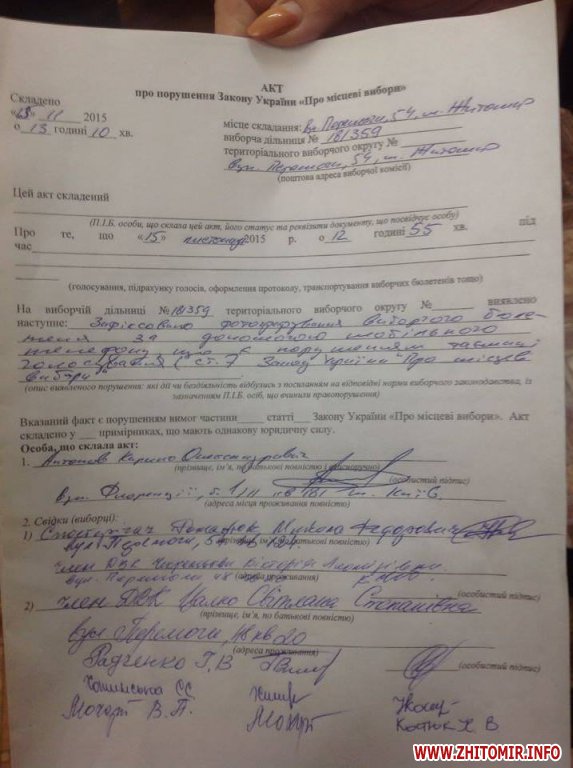 АКТ
про порушення Закону України «Про місцеві вибори»
Складено
«15» 11 2015
о 13 годині 10 хв.
місце складання: вул. Перемоги, 54, м. Житомир
виборча дільниця № 181359
територіального виборчого округу №
вул. Перемоги, 54, м. Житомир
(поштова адреса виборчої комісії)
Цей акт складений
(П.І.Б. особи, що склала цей акт, його статус та реквізити документу, що посвідчує особу)
Про те, що «15» листопада 2015 р. о 12 годині 55 хв. під
час
(голосування, підрахунку голосів, оформлення протоколу, транспортування виборчих бюлетенів тощо)
На виборчій дільниці № 181359 територіального виборчого округу № виявлено
наступне: Зафіксовано фотографування виборчого бюле-
теня за допомогою мобільного
телефону що є порушенням таємниці
голосування (ст. 7 Закону України "Про місцеві
вибори"
(опис виявленого порушення: які дії чи бездіяльність відбулись з посиланням на відповідні норми виборчого законодавства, із
зазначенням П.І.Б. осіб, що вчинили правопорушення)
Вказаний факт є порушенням вимог частини статті Закону України «Про місцеві вибори». Акт
складено у примірниках, що мають однакову юридичну силу.
Особа, що склала акт:
1.
(прізвище, ім'я, по батькові повністю і власноручно) (особистий підпис)
вул. Флоренції, б. 1/11 кв 181 м. Київ
(адреса місця проживання повністю)
2. Свідки (виборці):
1) Микола Федорович
вул Перемоги,
(прізвище, ім'я, по батькові повністю)
член ДВК Вікторія
вул. Перемоги
(адреса проживання) (особистий підпис)
2) член ДВК Світлана Степанівна
(прізвище, ім'я, по батькові повністю)
вул Перемоги, кв 20
(адреса проживання)
Радченко Г.В
(особистий підпис)
С.С.
В.П.
Х В
WWW.ZHITOMIR.INFO